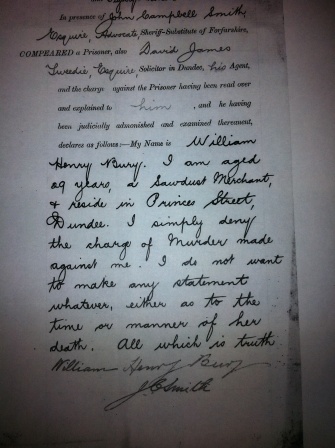 In presence of John Campbell Smith,
Esquire, Advocate, Sheriff-Substitute of Forfarshire,
COMPEARED a Prisoner, also David James
Tweedie, Esquire, Solicitor in Dundee, his Agent,
and the charge against the Prisoner having been read over
and explained to him, and he having
been judicially admonished and examined thereanent,
declares as follows:—My Name is William
Henry Bury. I am aged
29 years, a Sawdust Merchant,
& reside in Princes Street,
Dundee. I simply deny
the charge of Murder made
against me. I do not want
to make any statement
whatever, either as to the
time or manner of her
death. All which is truth
William Henry Bury
J C Smith